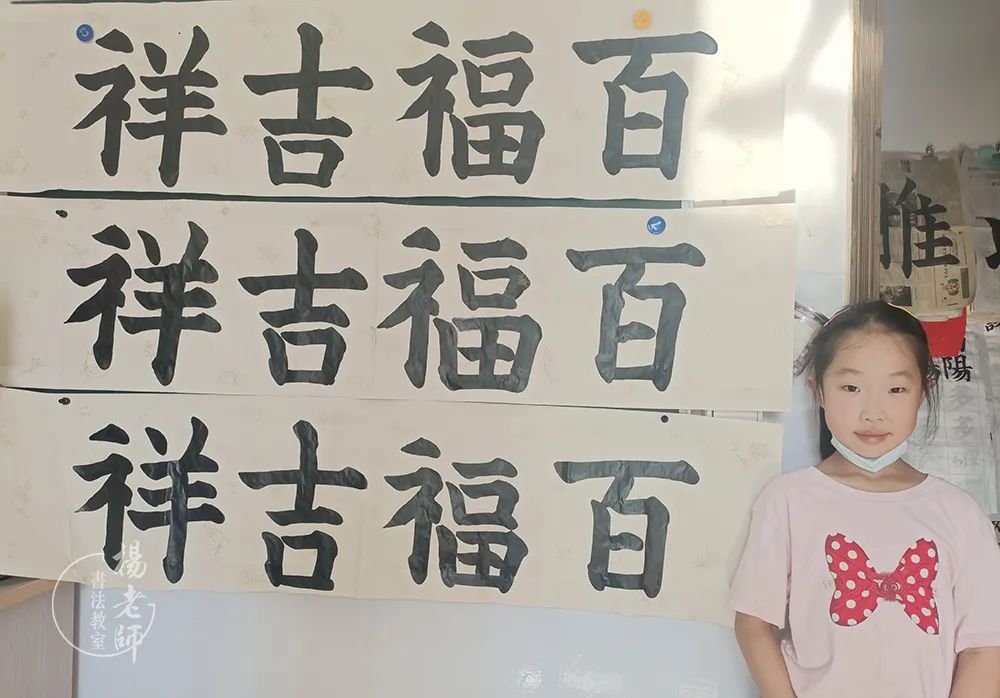 百福吉祥
百福吉祥
百福吉祥
陽
多
多
楊老師
書法教室